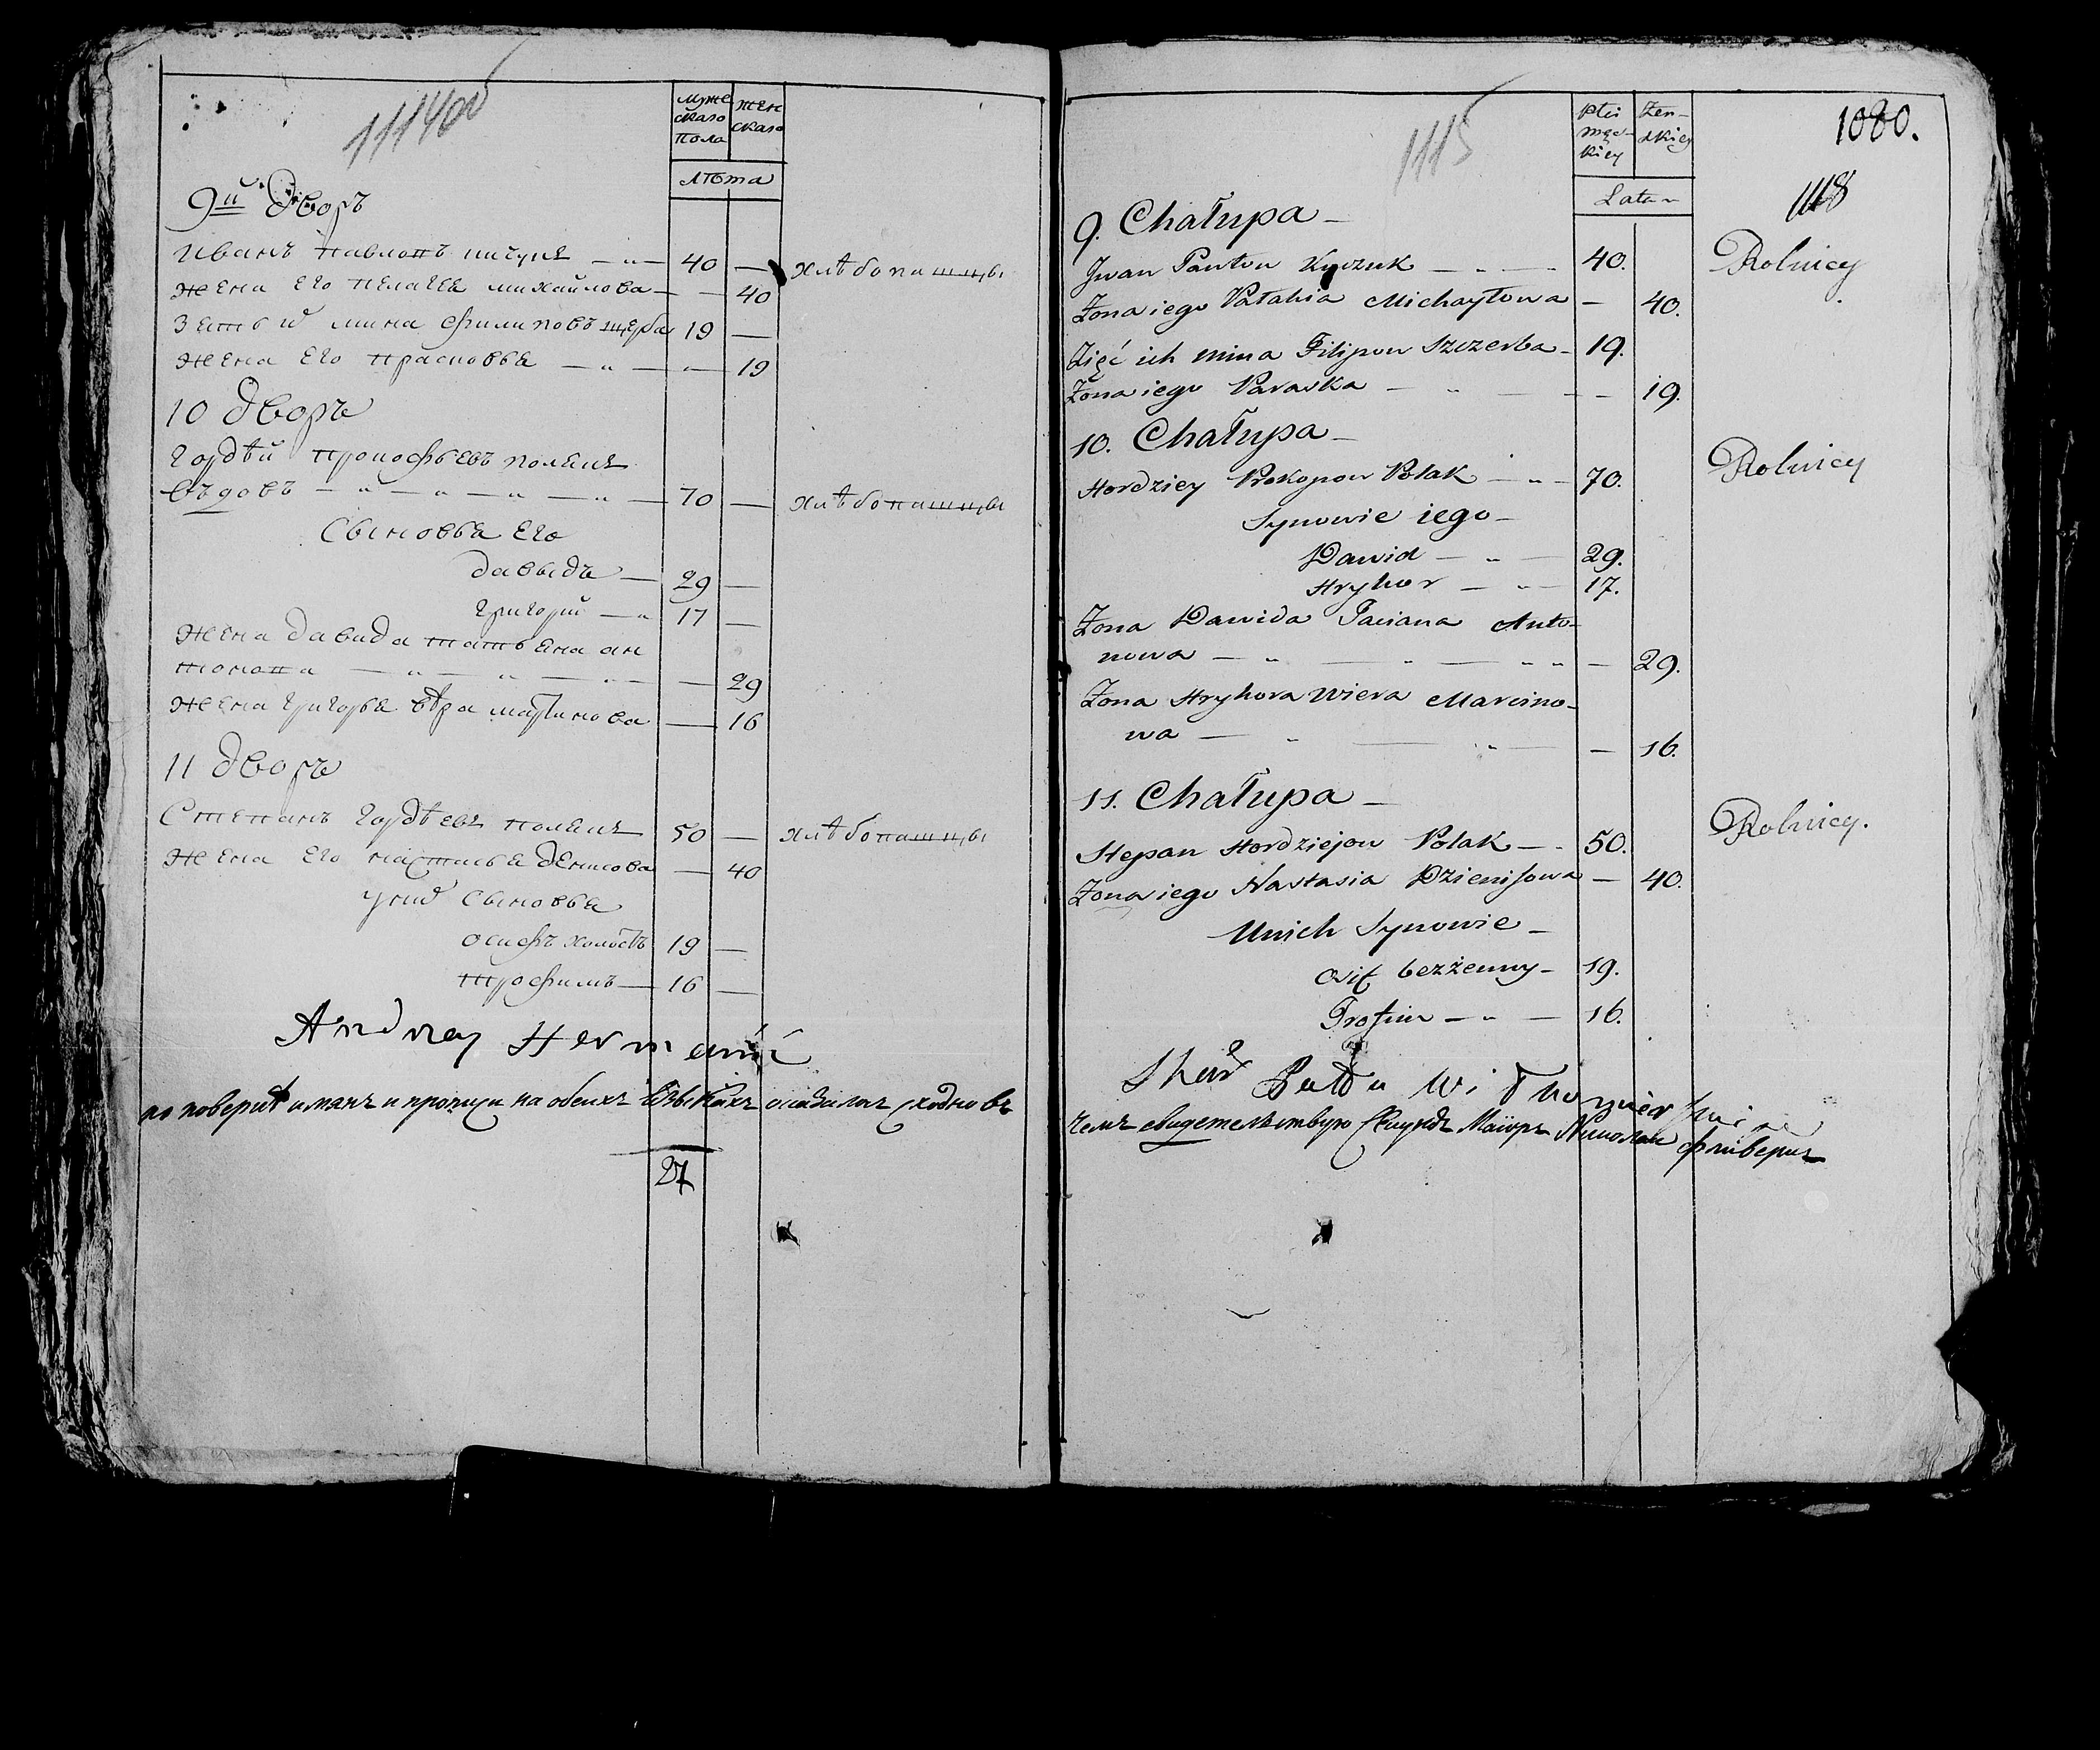 1114об
Муже
скаго
пола
жен
скаго
лѣта
9й дворъ
Иванъ павловъ 40 — хлѣбопашцы
жена его пелагея михайлова — 40
зеть и мина филиповъ щерба 19 —
жена его прасковья — 19
10 дворъ
гордѣй прокофьевъ полякъ
въдовъ 70 — хлѣбопашцы
Сыновья его
давыдъ — 29 —
григорий — 17 —
жена давида татьяна ан
тонова — 29
жена григорья вѣра мартинова — 16
11 дворъ
Степанъ гордѣевъ полякъ 50 — хлѣбопашцы
жена его настасья денисова — 40
у них Сыновья
осифъ холостъ 19 —
трофимъ — 16 —
Andrey
по поверке имянъ и прописи на обеихъ оказалось сходно въ
27
1115
Płci
męz-
kiey
Żen-
skiey
Lata
1080.
1118
9. Chałupa —
Jwan Pawłow 40. Rolnicy
Żona iego Pałahia Michayłowa — 40.
Zięć ich Mina Filipow Szczerba — 19.
Żona iego Paraska — 19.
10. Chałupa —
Hordziey Prokopow Polak — 70. Rolnicy
Synowie iego —
Dawid — 29.
Hryhor — 17.
Żona Dawida Taciana Anto-
nowa — 29.
Żona Hryhora Wiera Marcino-
wa — 16.
11. Chałupa —
Stepan Hordziejow Polak — 50. Rolnicy.
Żona iego Nastasia Dzienisowa — 40.
U nich Synowie —
Osif bezżenny — 19.
Trofim — 16.
чемъ свидетельствую Секундъ Маіоръ Николай